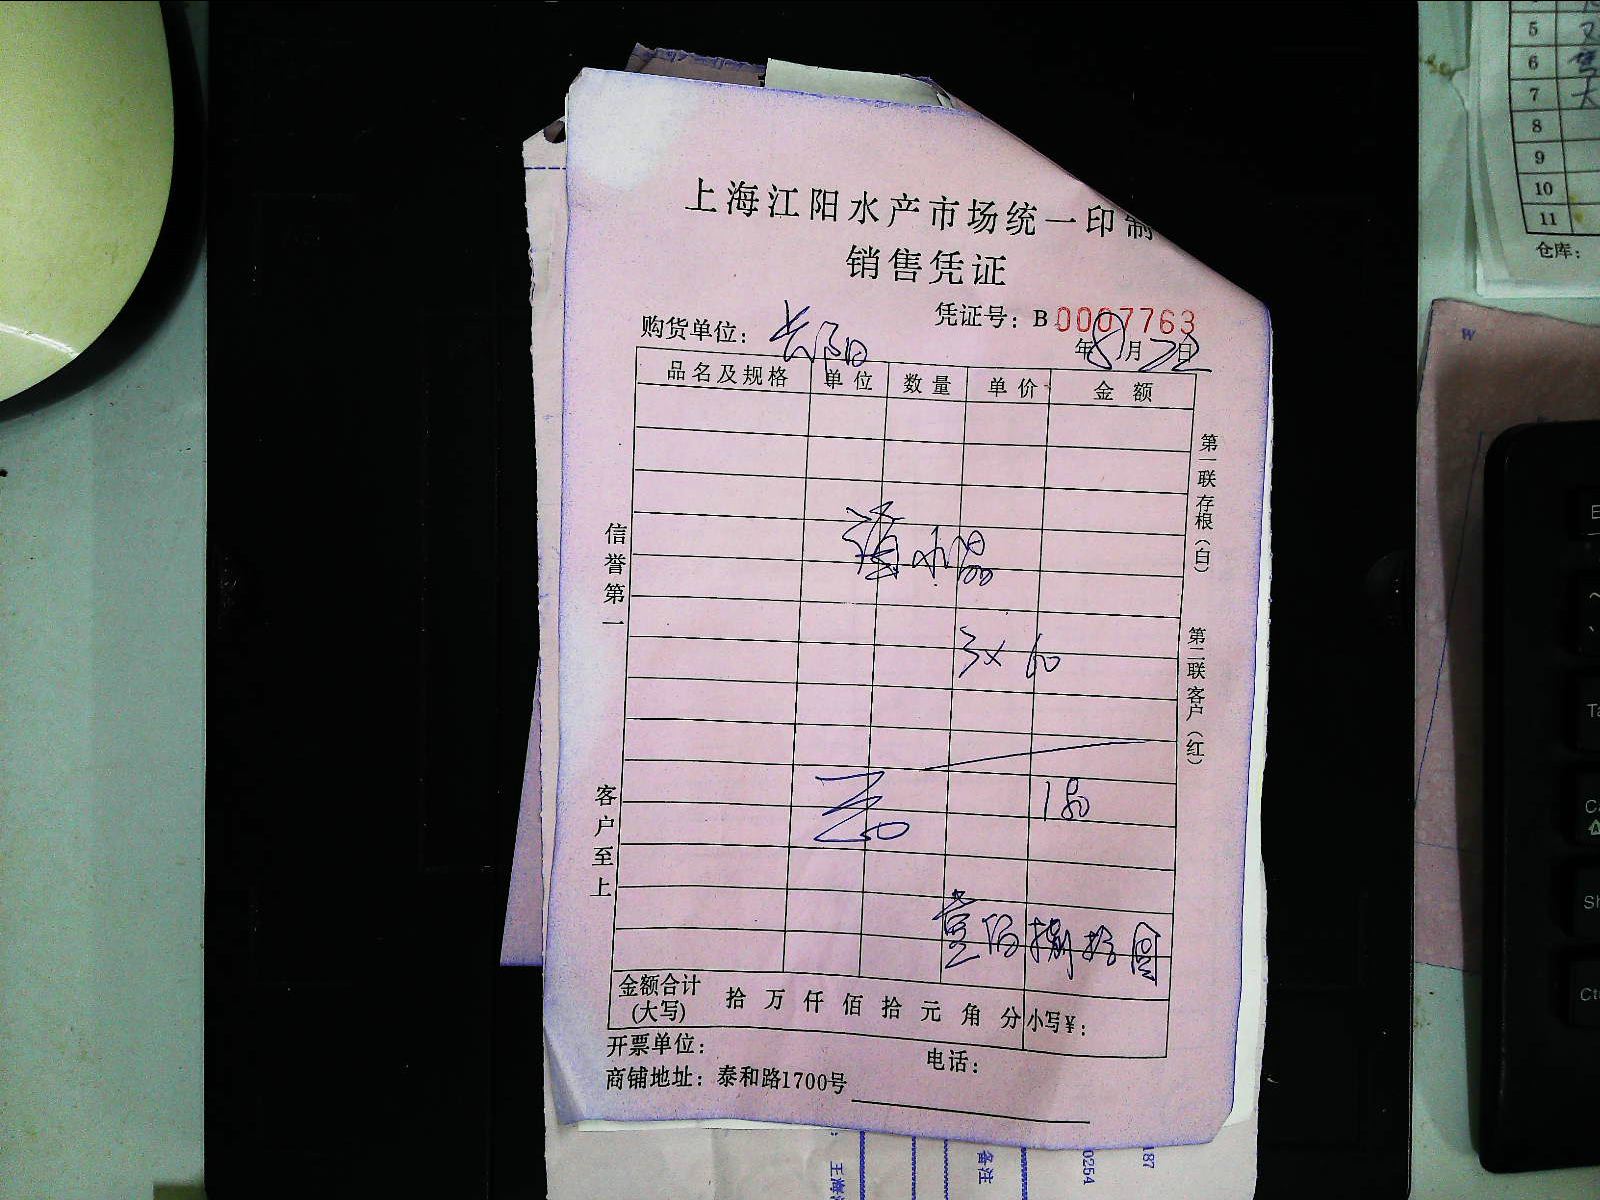 上海江阳水产市场统一印制
销售凭证
凭证号：B 0007763
购货单位：长阳
年8月22日
品名及规格 单位 数量 单价 金额
3×60
180
壹佰捌拾圆
金额合计(大写) 拾 万 仟 佰 拾 元 角 分 小写¥：
开票单位：
电话：
商铺地址：泰和路1700号
信誉第一
客户至上
第一联存根（白）
第二联客户（红）
5
6
7
8
9
10
11
仓库：
备注
0254
187